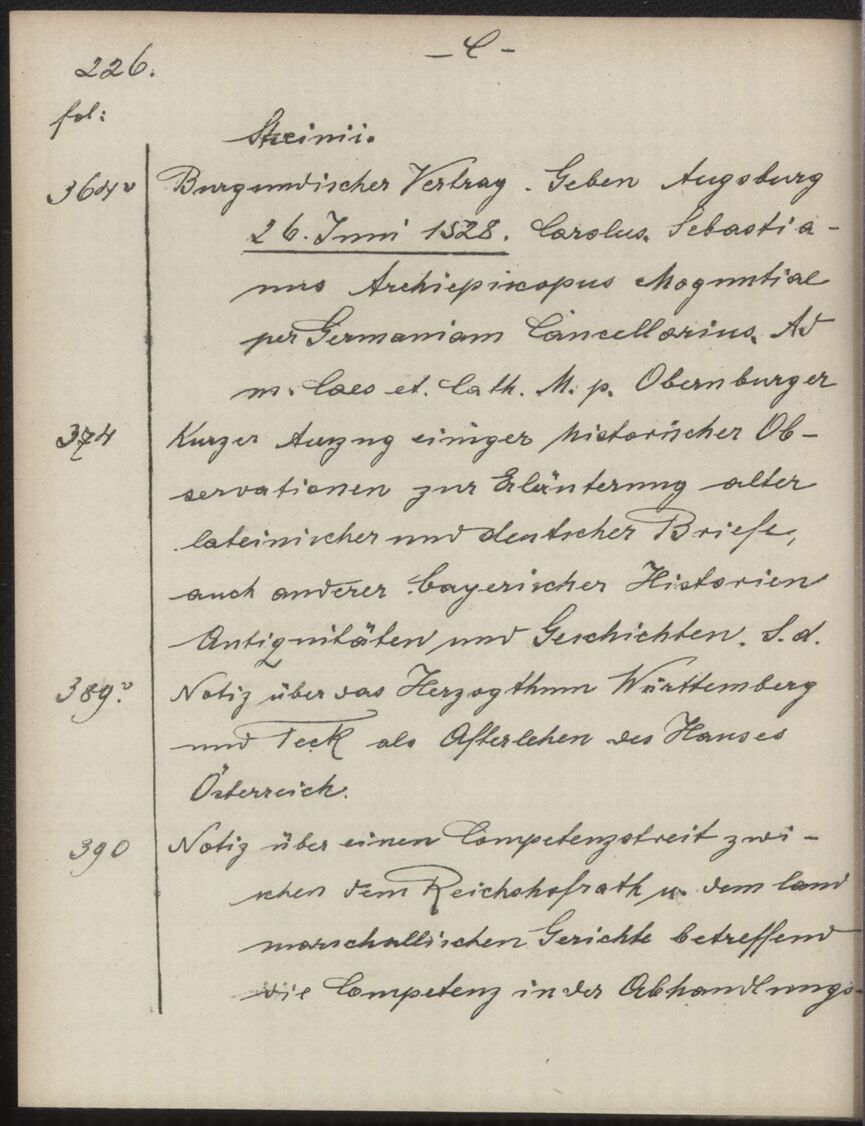 226.
– C –
fol:
Steinii.
364v Burgundischer Vertrag. Geben Augsburg
26. Juni 1528. Carolus. Sebastia-
nus Archiepiscopus Moguntiae
per Germaniam Cancellarius. Ad
m. Caes et. Cath. M. p. Obernburger
374 Kurzer Auszug einiger historischer Ob-
servationen zur Erläuterung alter
lateinischer und deutscher Briefe,
auch anderer bayerischer Historien
Antiquitäten und Geschichten. S. d.
389.v Notiz über das Herzogthum Württemberg
und Teck als Afterlehen des Hauses
Österreich.
390 Notiz über einen Competenzstreit zwi-
schen dem Reichshofrath u. dem land
marschallischen Gerichte betreffend
die Competenz in der Abhandlungs-